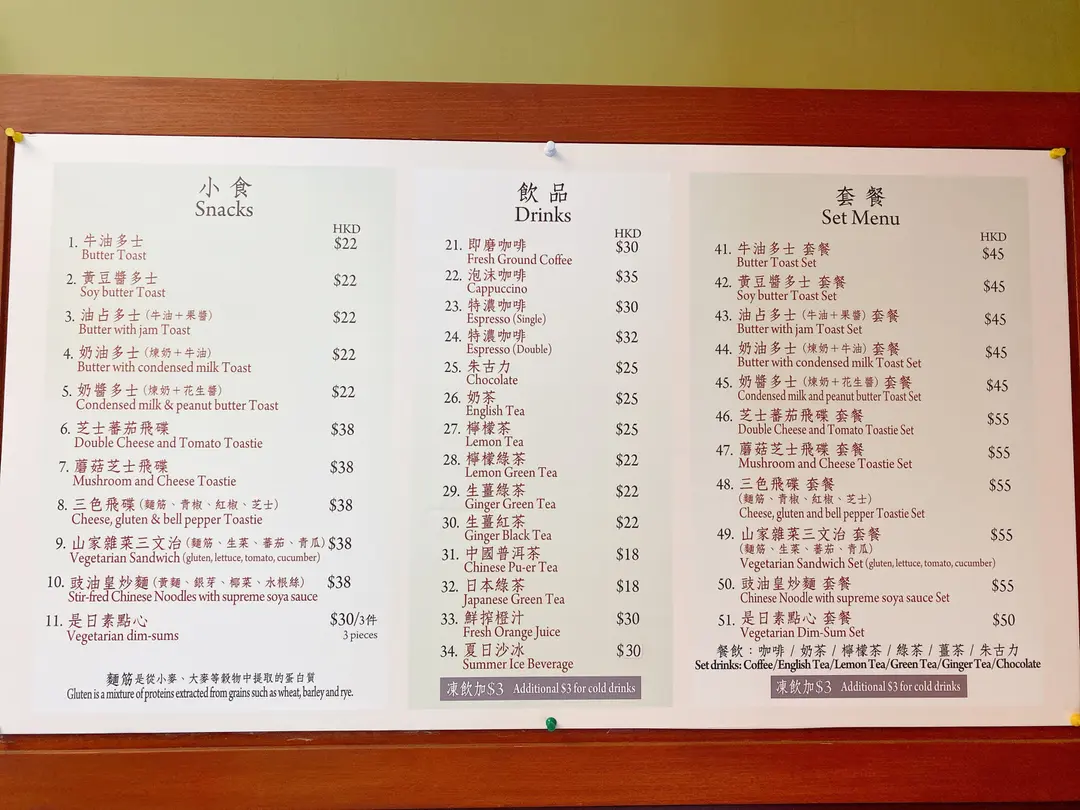 小食
Snacks
HKD
1. 牛油多士 $22
Butter Toast
2. 黃豆醬多士 $22
Soy butter Toast
3. 油占多士 (牛油＋果醬) $22
Butter with jam Toast
4. 奶油多士 (煉奶＋牛油) $22
Butter with condensed milk Toast
5. 奶醬多士 (煉奶＋花生醬) $22
Condensed milk & peanut butter Toast
6. 芝士蕃茄飛碟 $38
Double Cheese and Tomato Toastie
7. 蘑菇芝士飛碟 $38
Mushroom and Cheese Toastie
8. 三色飛碟 (麵筋、青椒、紅椒、芝士) $38
Cheese, gluten & bell pepper Toastie
9. 山家雜菜三文治 (麵筋、生菜、蕃茄、青瓜) $38
Vegetarian Sandwich (gluten, lettuce, tomato, cucumber)
10. 豉油皇炒麵 (黃麵、銀芽、椰菜、水根絲) $38
Stir-fred Chinese Noodles with supreme soya sauce
11. 是日素點心 $30/3件
Vegetarian dim-sums 3 pieces
麵筋是從小麥、大麥等穀物中提取的蛋白質
Gluten is a mixture of proteins extracted from grains such as wheat, barley and rye.
飲品
Drinks
HKD
21. 即磨咖啡 $30
Fresh Ground Coffee
22. 泡沫咖啡 $35
Cappuccino
23. 特濃咖啡 $30
Espresso (Single)
24. 特濃咖啡 $32
Espresso (Double)
25. 朱古力 $25
Chocolate
26. 奶茶 $25
English Tea
27. 檸檬茶 $25
Lemon Tea
28. 檸檬綠茶 $22
Lemon Green Tea
29. 生薑綠茶 $22
Ginger Green Tea
30. 生薑紅茶 $22
Ginger Black Tea
31. 中國普洱茶 $18
Chinese Pu-er Tea
32. 日本綠茶 $18
Japanese Green Tea
33. 鮮搾橙汁 $30
Fresh Orange Juice
34. 夏日沙冰 $30
Summer Ice Beverage
凍飲加$3 Additional $3 for cold drinks
套餐
Set Menu
HKD
41. 牛油多士 套餐 $45
Butter Toast Set
42. 黃豆醬多士 套餐 $45
Soy butter Toast Set
43. 油占多士 (牛油＋果醬) 套餐 $45
Butter with jam Toast Set
44. 奶油多士 (煉奶＋牛油) 套餐 $45
Butter with condensed milk Toast Set
45. 奶醬多士 (煉奶＋花生醬) 套餐 $45
Condensed milk and peanut butter Toast Set
46. 芝士蕃茄飛碟 套餐 $55
Double Cheese and Tomato Toastie Set
47. 蘑菇芝士飛碟 套餐 $55
Mushroom and Cheese Toastie Set
48. 三色飛碟 套餐 $55
(麵筋、青椒、紅椒、芝士)
Cheese, gluten and bell pepper Toastie Set
49. 山家雜菜三文治 套餐 $55
(麵筋、生菜、蕃茄、青瓜)
Vegetarian Sandwich Set (gluten, lettuce, tomato, cucumber)
50. 豉油皇炒麵 套餐 $55
Chinese Noodle with supreme soya sauce Set
51. 是日素點心 套餐 $50
Vegetarian Dim-Sum Set
餐飲：咖啡 / 奶茶 / 檸檬茶 / 綠茶 / 薑茶 / 朱古力
Set drinks: Coffee / English Tea / Lemon Tea / Green Tea / Ginger Tea / Chocolate
凍飲加$3 Additional $3 for cold drinks